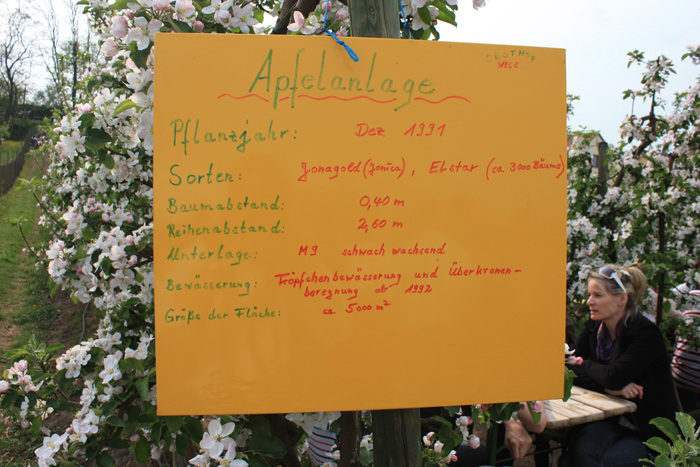 OBSTHOF
Apfelanlage
Pflanzjahr: Dez. 1991
Sorten: Jonagold (Jonica), Elstar (ca. 3000 Bäume)
Baumabstand: 0,40 m
Reihenabstand: 2,60 m
Unterlage: M9 schwach wachsend
Bewässerung: Tröpfchenbewässerung und Überkronen-
beregnung ab 1992
Größe der Fläche: ca 5000 m²